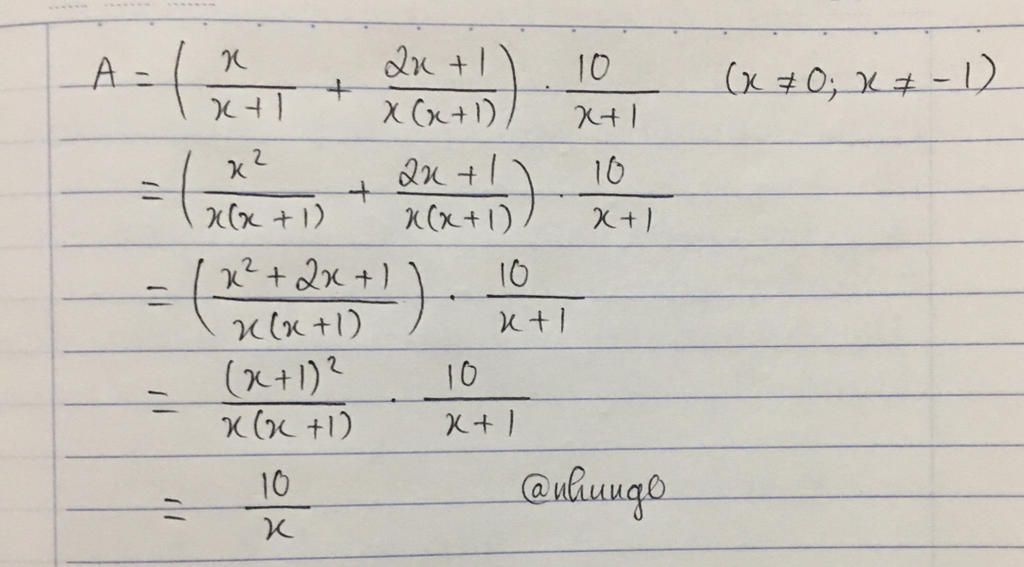 A = ( x/(x+1) + (2x+1)/(x(x+1)) ) · 10/(x+1) (x ≠ 0; x ≠ -1)
= ( x²/(x(x+1)) + (2x+1)/(x(x+1)) ) · 10/(x+1)
= ( (x²+2x+1)/(x(x+1)) ) · 10/(x+1)
= (x+1)²/(x(x+1)) · 10/(x+1)
= 10/x @nhungo